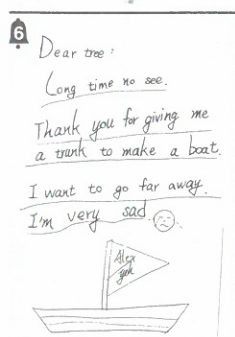 6
Dear tree:
Long time no see.
Thank you for giving me
a trunk to make a boat.
I want to go far away.
I'm very sad.
Alex